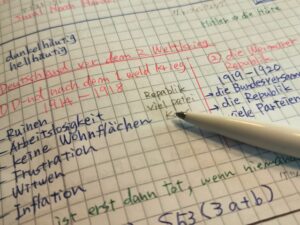 dunkelhäutig
hellhäutig
Hitler
Deutschland vor dem 2. Weltkrieg
und nach dem 1. Weld krieg
1914 - 1918
Ruinen
Arbeitslosigkeit
keine Wohnflächen
Frustration
Witwen
Inflation
Republik
viel partei
② die Weimarer
Republik
1919 - 1920
→ die Bundesversam
→ die Republik
→ viele Parteien
ist erst dann tot, wenn niemand
(3a+b)